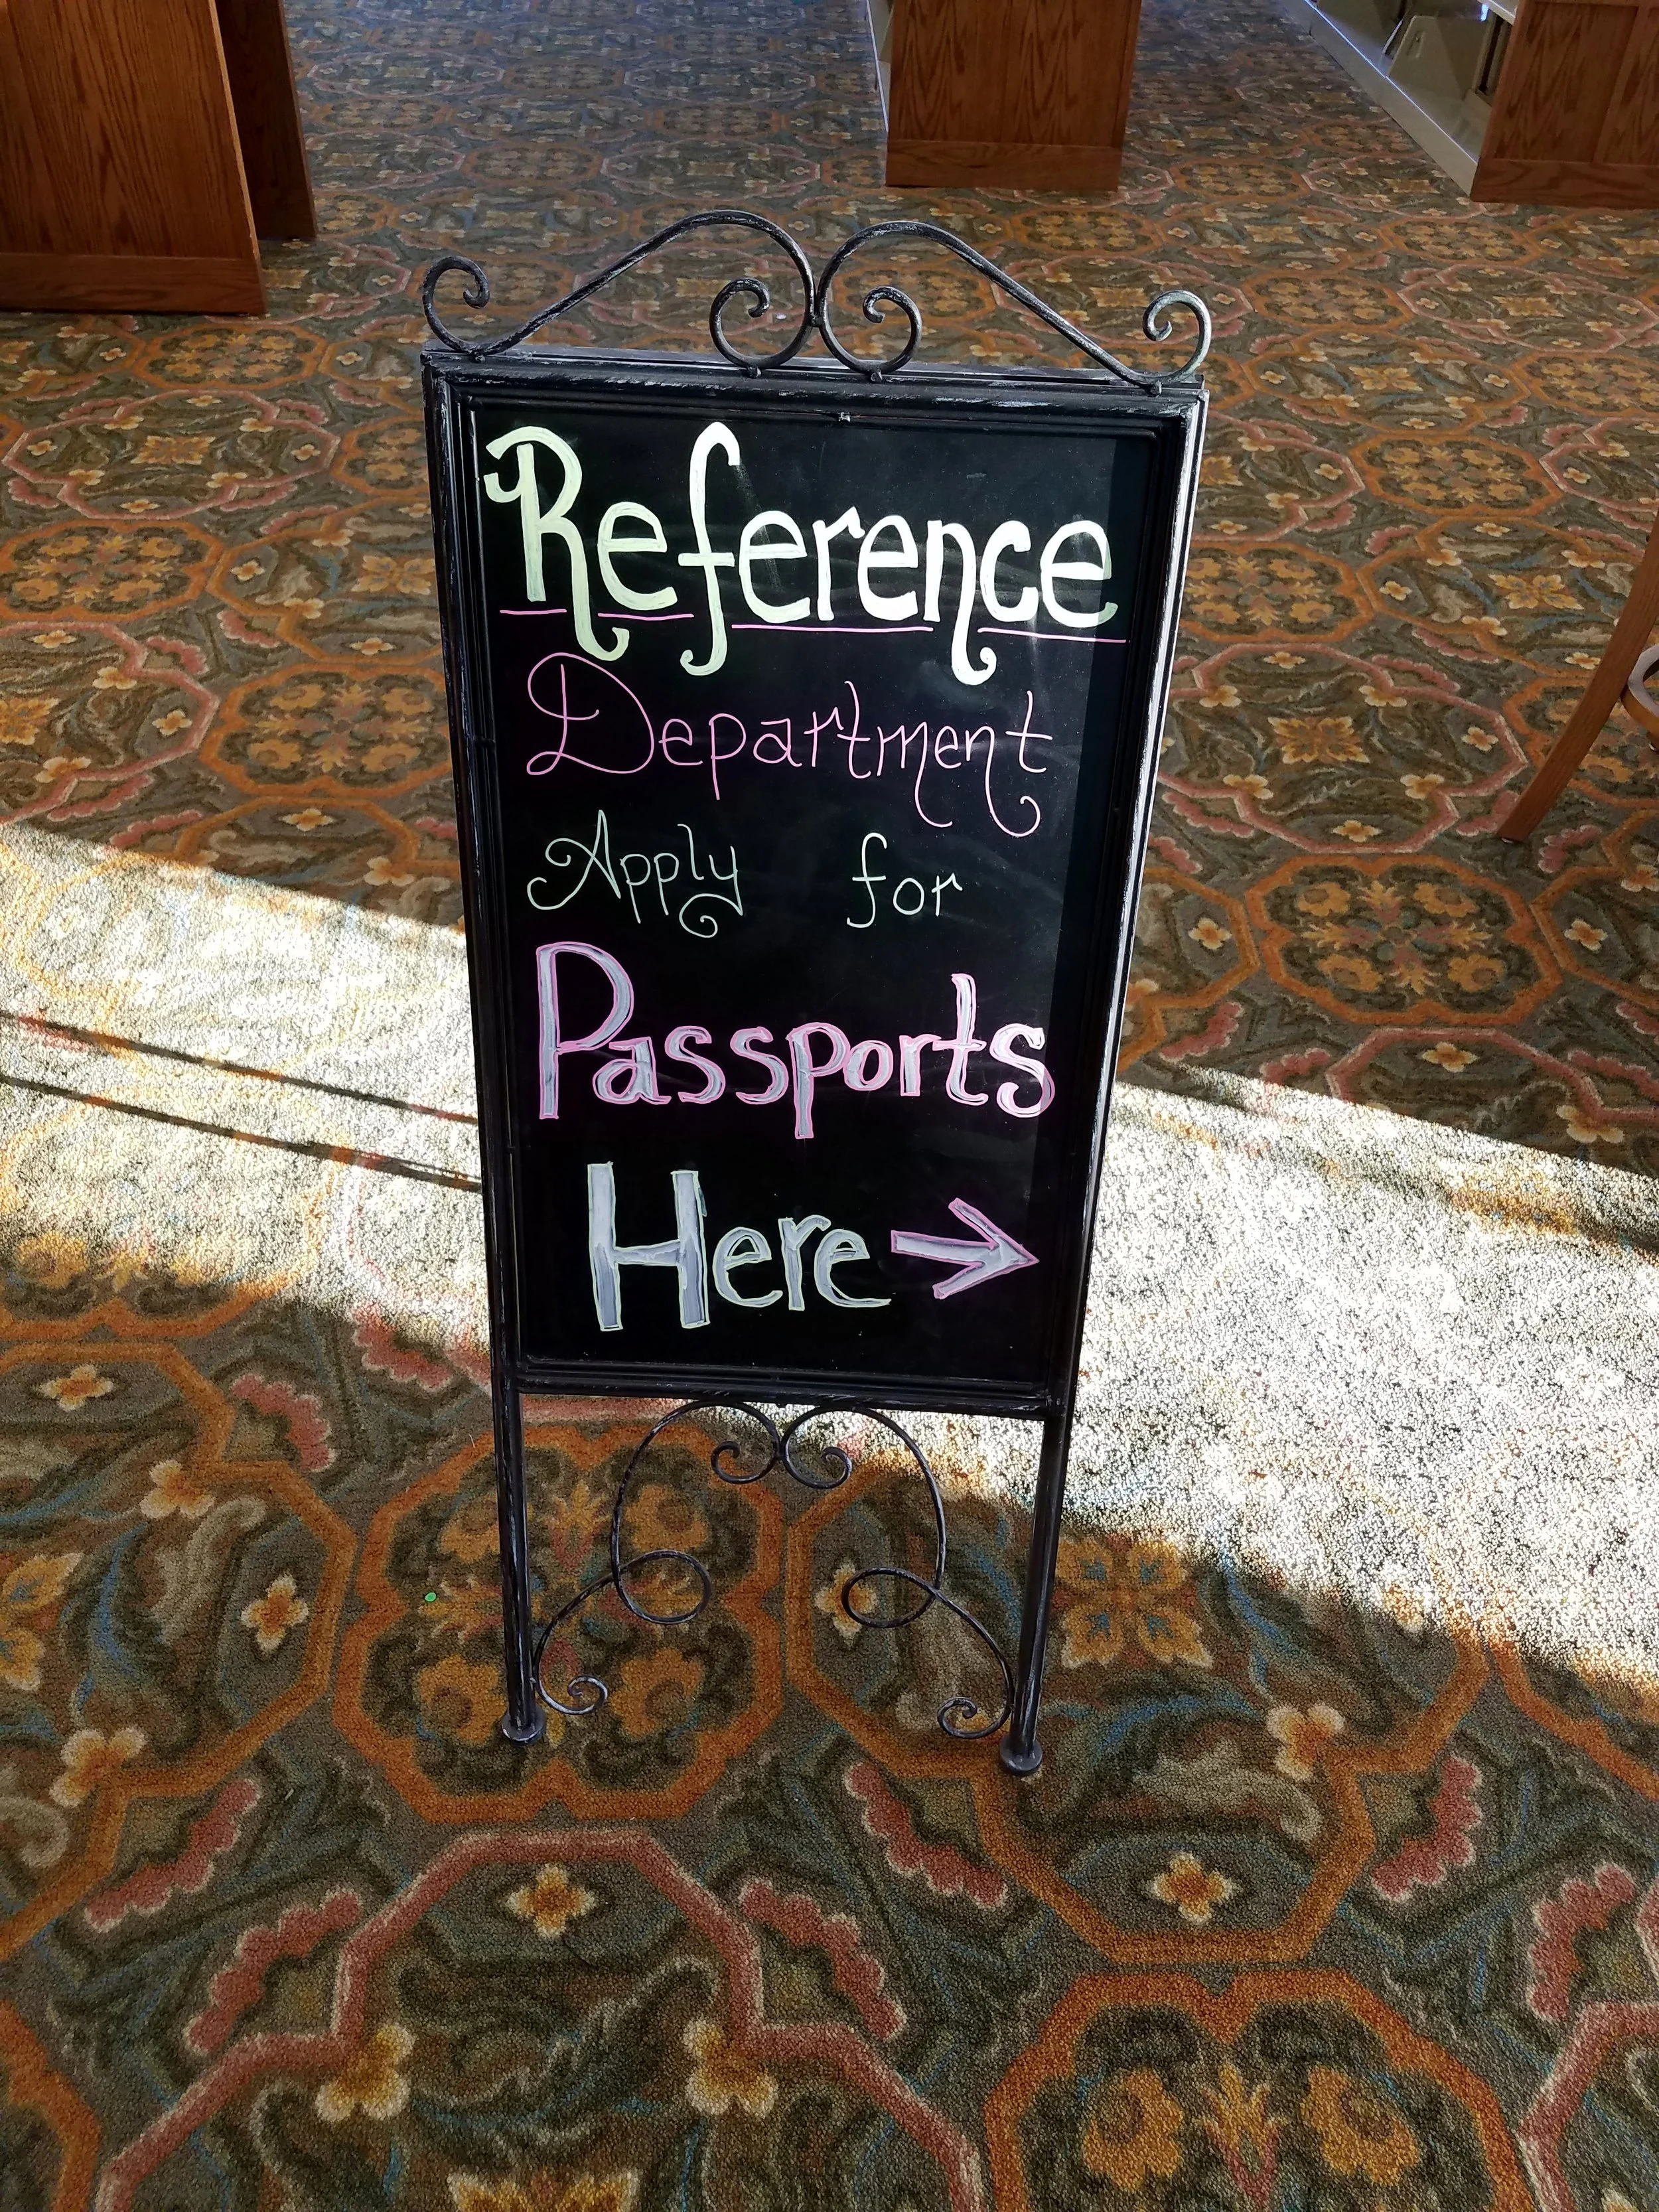 Reference
Department
Apply for
Passports
Here →